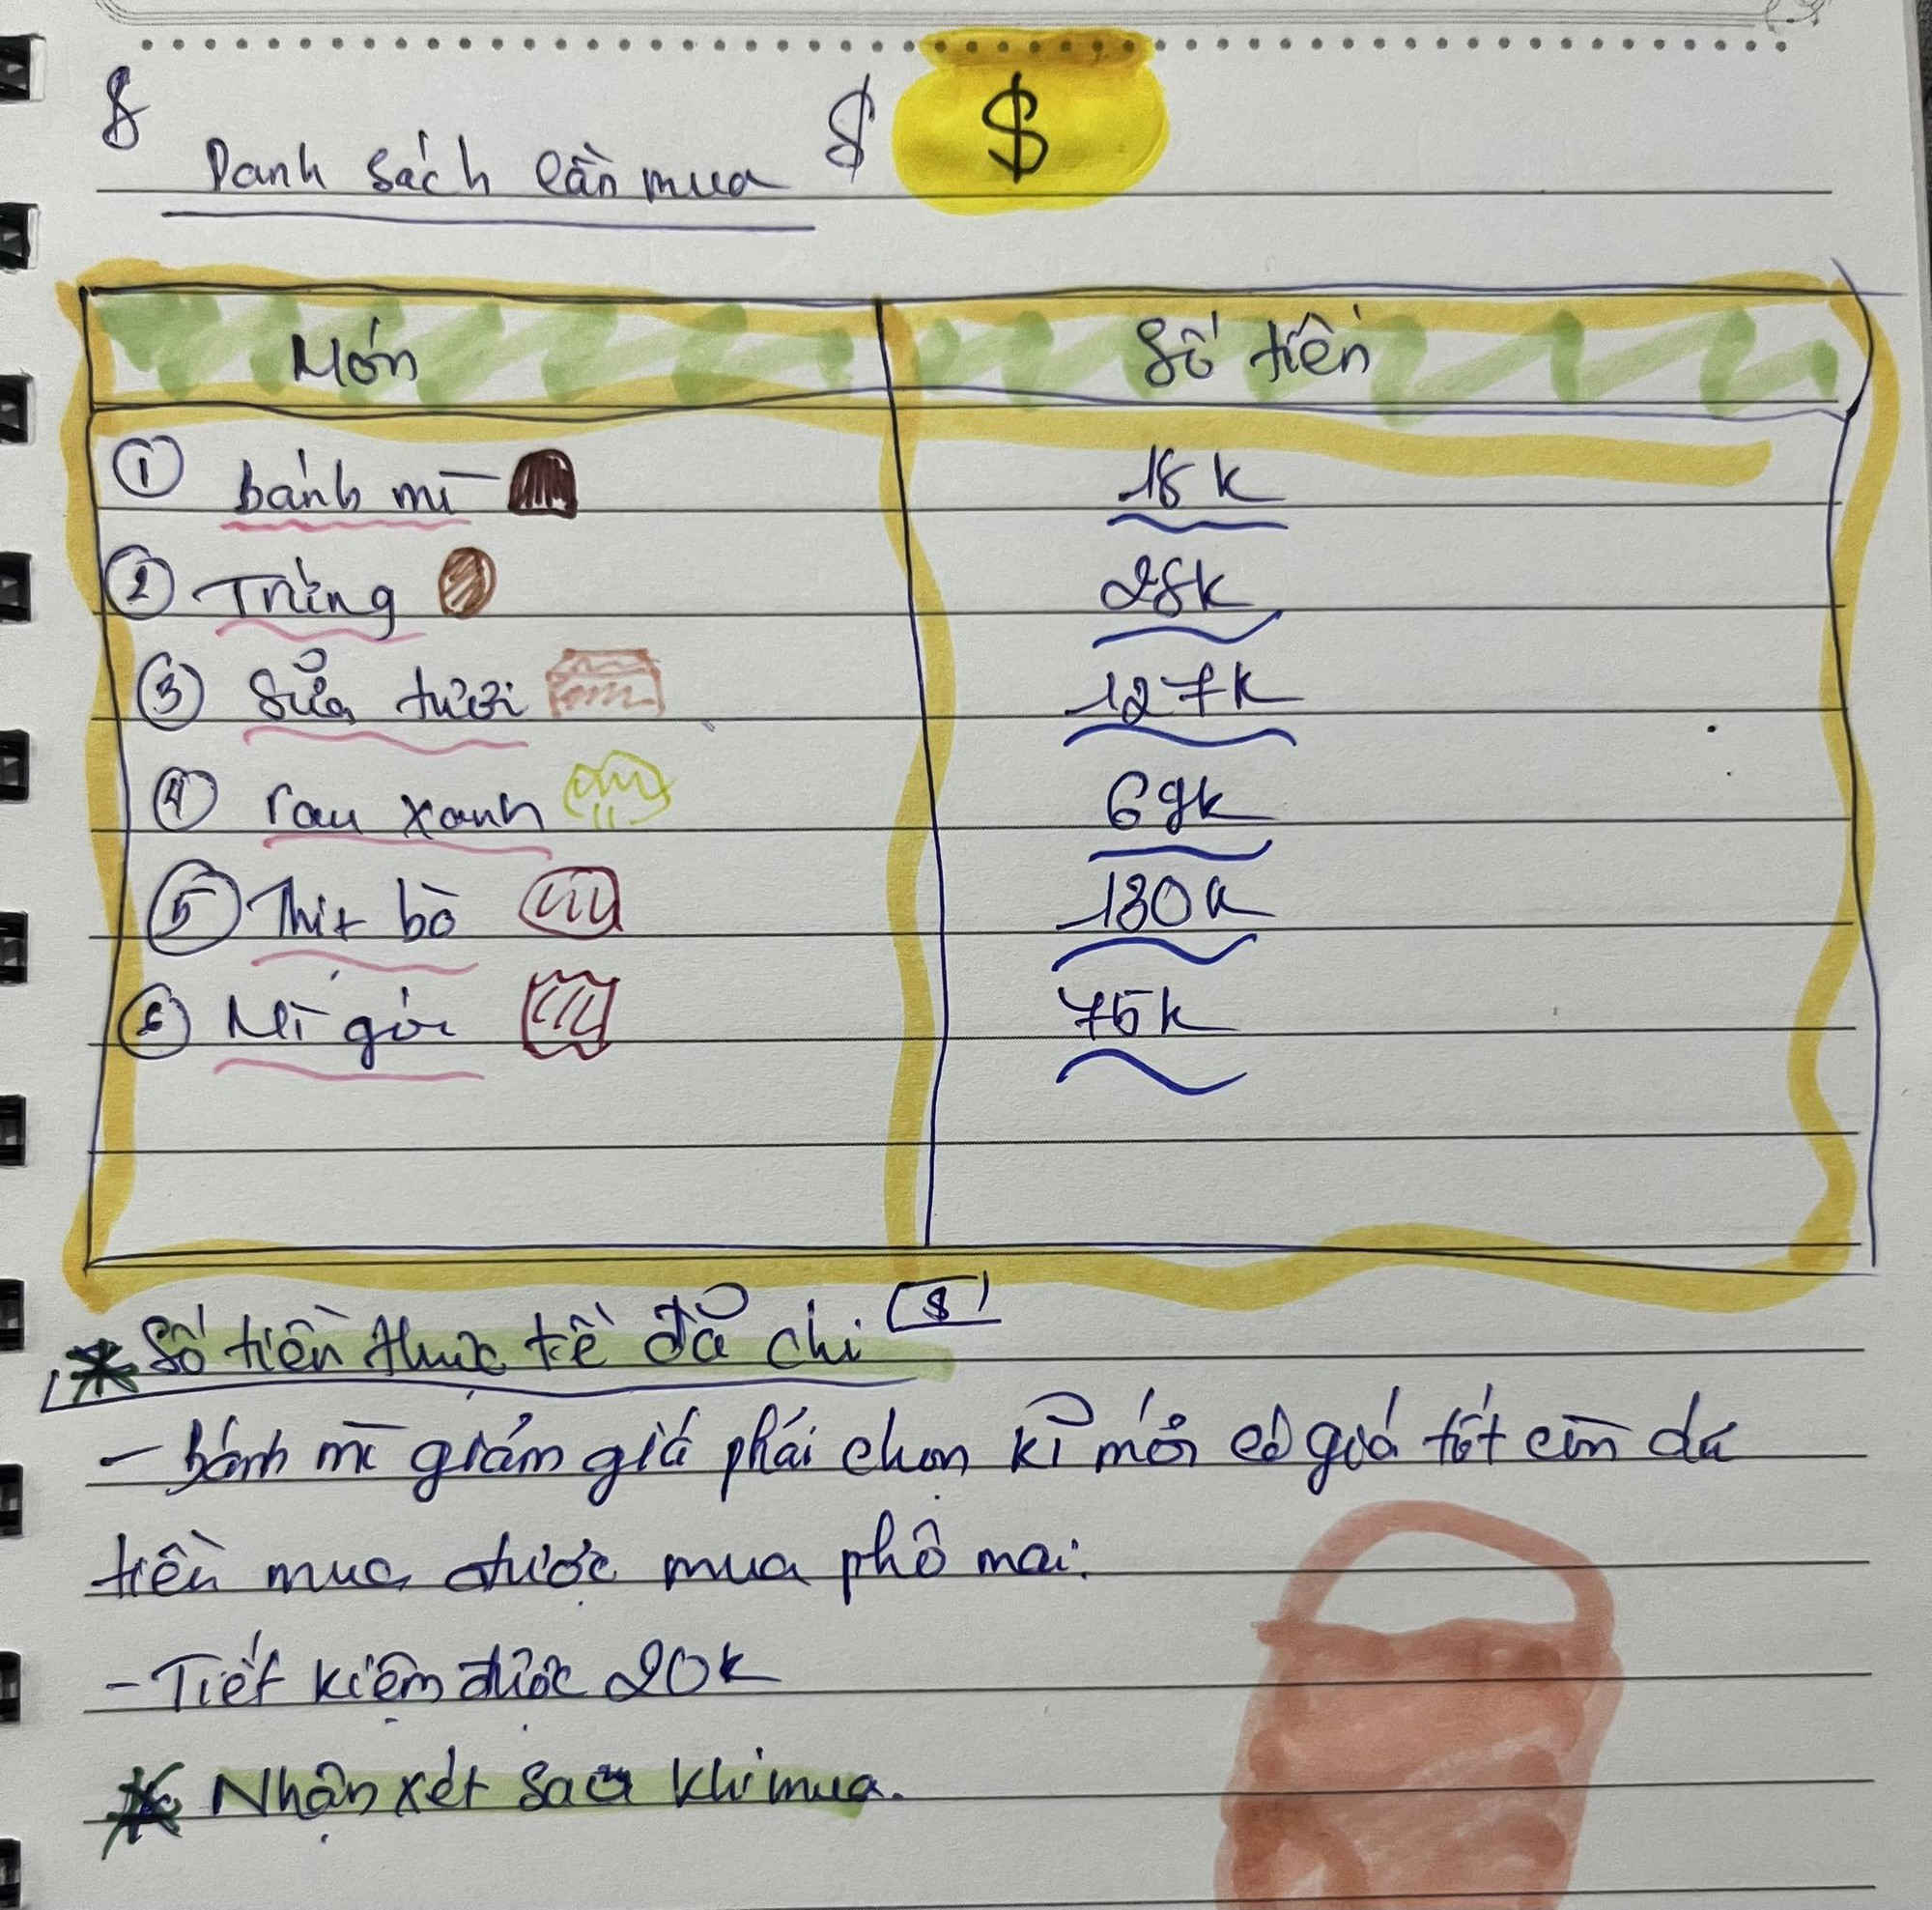 $ Danh sách cần mua $ $
Món Số tiền
① bánh mì 18k
② Trứng 28k
③ Sữa tươi 127k
④ rau xanh 69k
⑤ Thịt bò 130k
⑥ Mì gói 75k
* Số tiền thực tế đã chi $
- bánh mì giảm giá phải chọn kĩ mới có giá tốt còn dư
tiền mua được mua phô mai.
- Tiết kiệm được 20k
* Nhận xét sau khi mua.